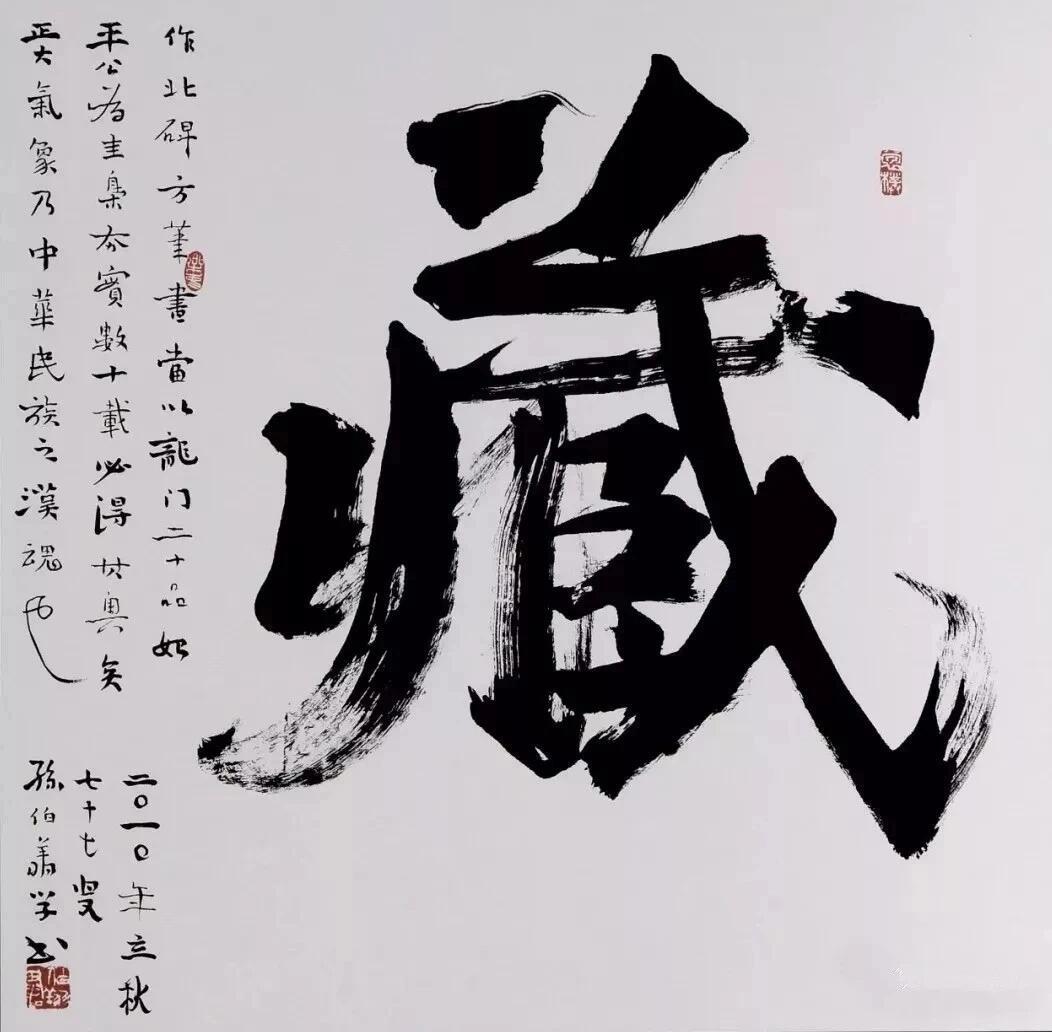 藏
作北碑方筆書當以龍门二十品始
平公为圭臬夯實數十載必得其奧矣
正大氣象乃中華民族之漢魂也
二〇一〇年立秋
七十七叟
孫伯翔学书